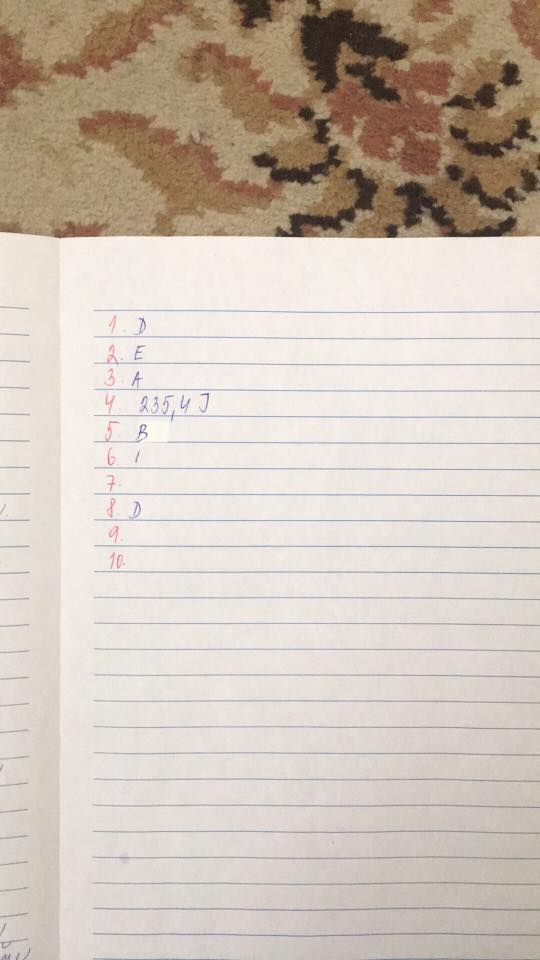 1. D
2. E
3. A
4. 235,4 J
5. B
6. 1
7.
8. D
9.
10.